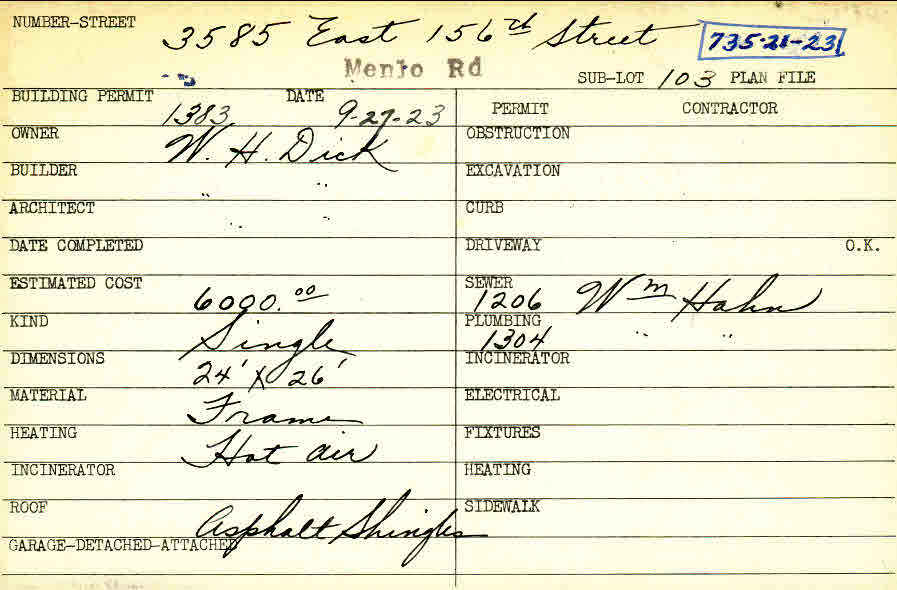 NUMBER-STREET 3585 East 156th Street 735-21-23
Menlo Rd SUB-LOT 103 PLAN FILE
BUILDING PERMIT 1383 DATE 9-27-23 PERMIT CONTRACTOR
OWNER W. H. Dick OBSTRUCTION
BUILDER " " EXCAVATION
ARCHITECT " " CURB
DATE COMPLETED DRIVEWAY O.K.
ESTIMATED COST 6000.00 SEWER 1206 Wm Hahn
KIND Single PLUMBING 1304 " "
DIMENSIONS 24' X 26' INCINERATOR
MATERIAL Frame ELECTRICAL
HEATING Hot air FIXTURES
INCINERATOR HEATING
ROOF Asphalt Shingles SIDEWALK
GARAGE-DETACHED-ATTACHED